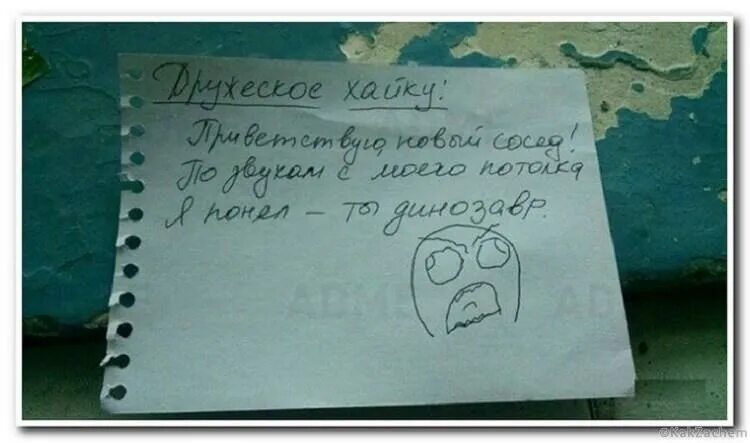 Дружеское хайку:
Приветствую, новый сосед!
По звукам с моего потолка
Я понял – ты динозавр.
ADME AD
©KakZachem